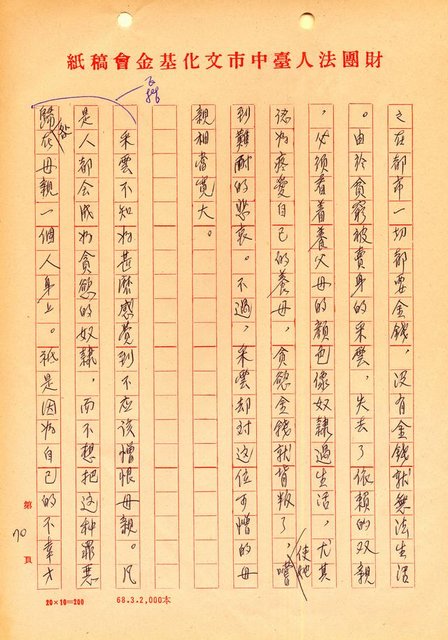 財團法人臺中市文化基金會稿紙
之在都市一切都要金錢,沒有金錢就無法生活
。由於貧窮被賣身的采雲,失去了依賴的双親
,必須看着養父母的顏色像奴隸過生活,尤其
認為疼愛自己的養母,貪慾金錢就背叛了,使她嚐
到難耐的悲哀。不過,采雲却對这位可憎的母
親相當寬大。
采雲不知為甚麼感覺到不应該憎恨母親。凡
是人都会成為貪慾的奴隸,而不想把这种罪惡
歸咎在母親一個人身上。祇是因為自己的不幸才
第70頁
20×10=200
68.3.2,000本